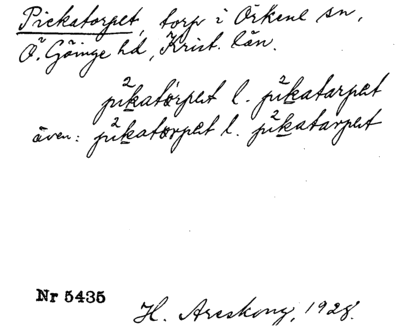 Pickatorpet, torp i Örkene sn,
Ö. Göinge hd, Krist. län.
p²ikatorpet l. p²ikatarpet
även: p²ikatorpet l. p²ikatarpet
Nr 5435
H. Areskog, 1928.